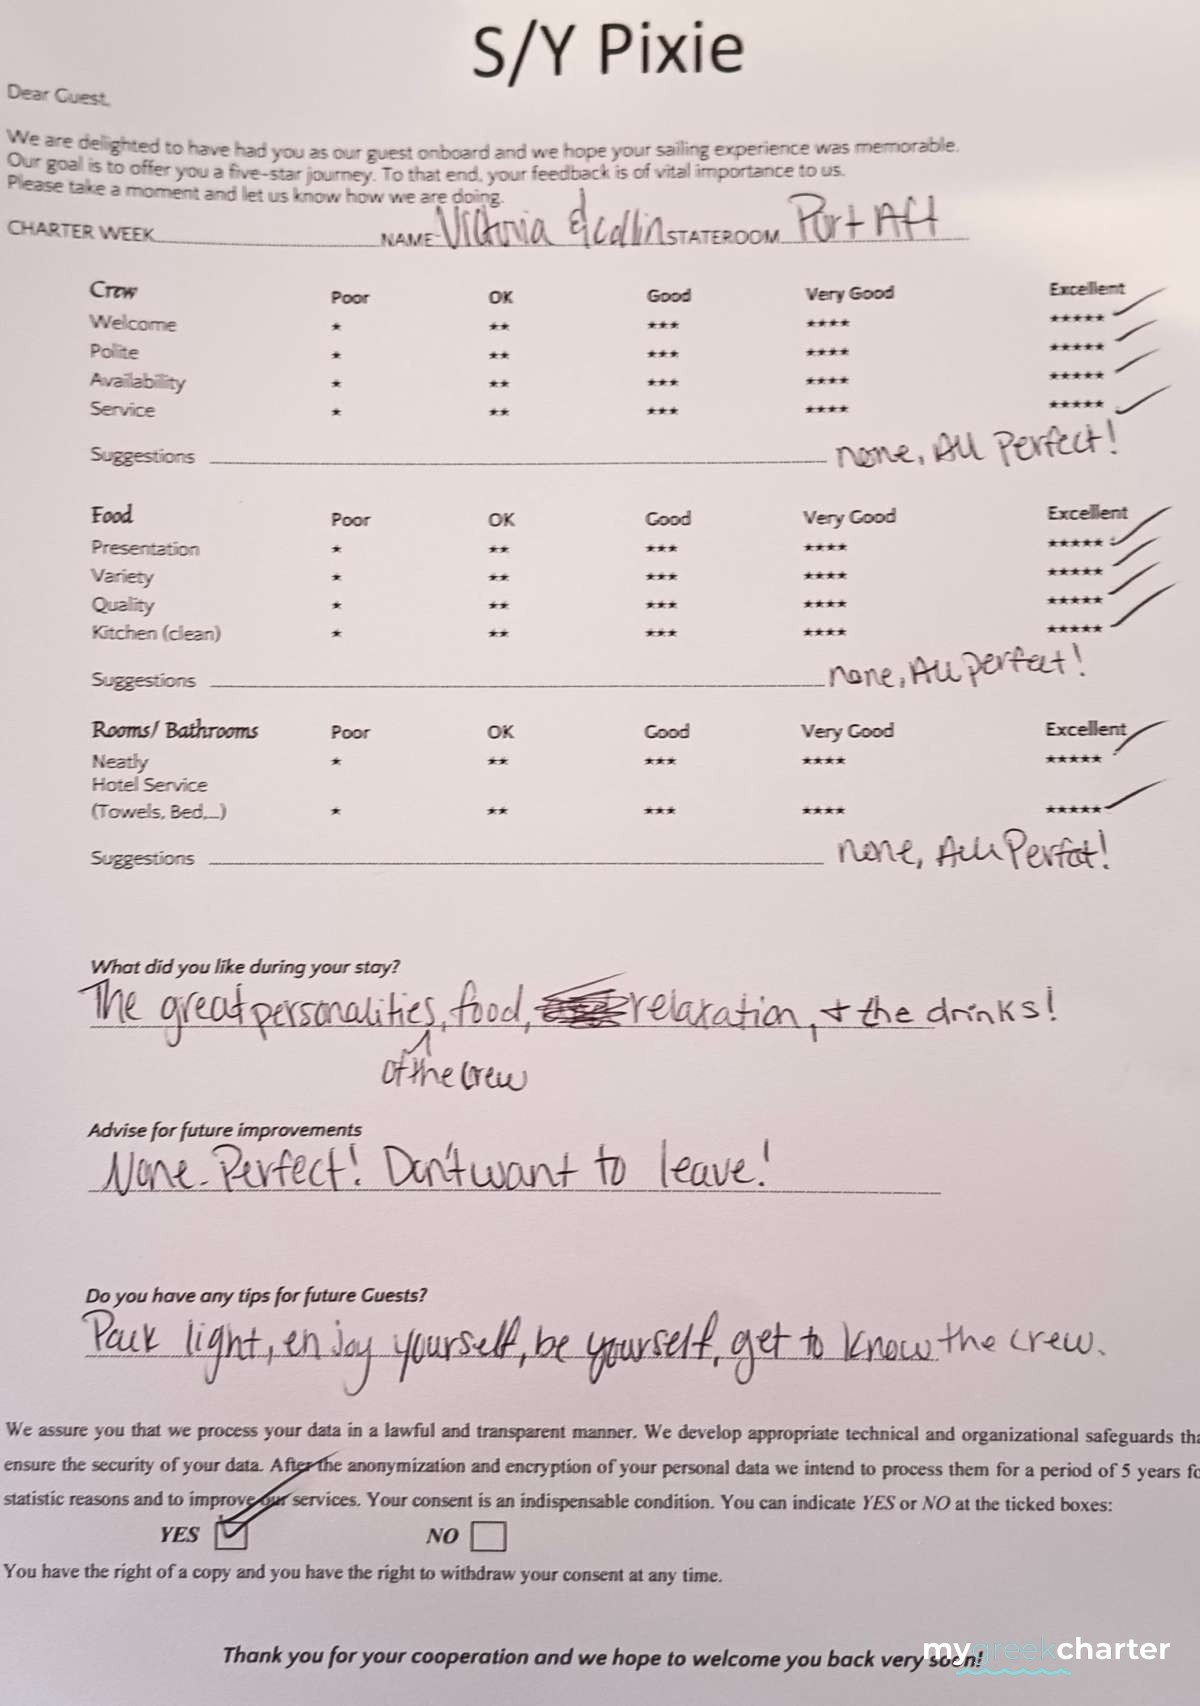 S/Y Pixie
Dear Guest,
We are delighted to have had you as our guest onboard and we hope your sailing experience was memorable.
Our goal is to offer you a five-star journey. To that end, your feedback is of vital importance to us.
Please take a moment and let us know how we are doing.
CHARTER WEEK NAME Victoria & Collin STATEROOM Port Aft
Crew Poor OK Good Very Good Excellent
Welcome * ** *** **** *****
Polite * ** *** **** *****
Availability * ** *** **** *****
Service * ** *** **** *****
Suggestions none, All Perfect!
Food Poor OK Good Very Good Excellent
Presentation * ** *** **** *****
Variety * ** *** **** *****
Quality * ** *** **** *****
Kitchen (clean) * ** *** **** *****
Suggestions none, All perfect!
Rooms/ Bathrooms Poor OK Good Very Good Excellent
Neatly * ** *** **** *****
Hotel Service
(Towels, Bed,...) * ** *** **** *****
Suggestions none, All Perfect!
What did you like during your stay?
The great personalities, food, relaxation, + the drinks!
of the crew
Advise for future improvements
None. Perfect! Don't want to leave!
Do you have any tips for future Guests?
Pack light, enjoy yourself, be yourself, get to know the crew.
We assure you that we process your data in a lawful and transparent manner. We develop appropriate technical and organizational safeguards tha
ensure the security of your data. After the anonymization and encryption of your personal data we intend to process them for a period of 5 years fo
statistic reasons and to improve our services. Your consent is an indispensable condition. You can indicate YES or NO at the ticked boxes:
YES NO
You have the right of a copy and you have the right to withdraw your consent at any time.
Thank you for your cooperation and we hope to welcome you back very soon!
mygreekcharter